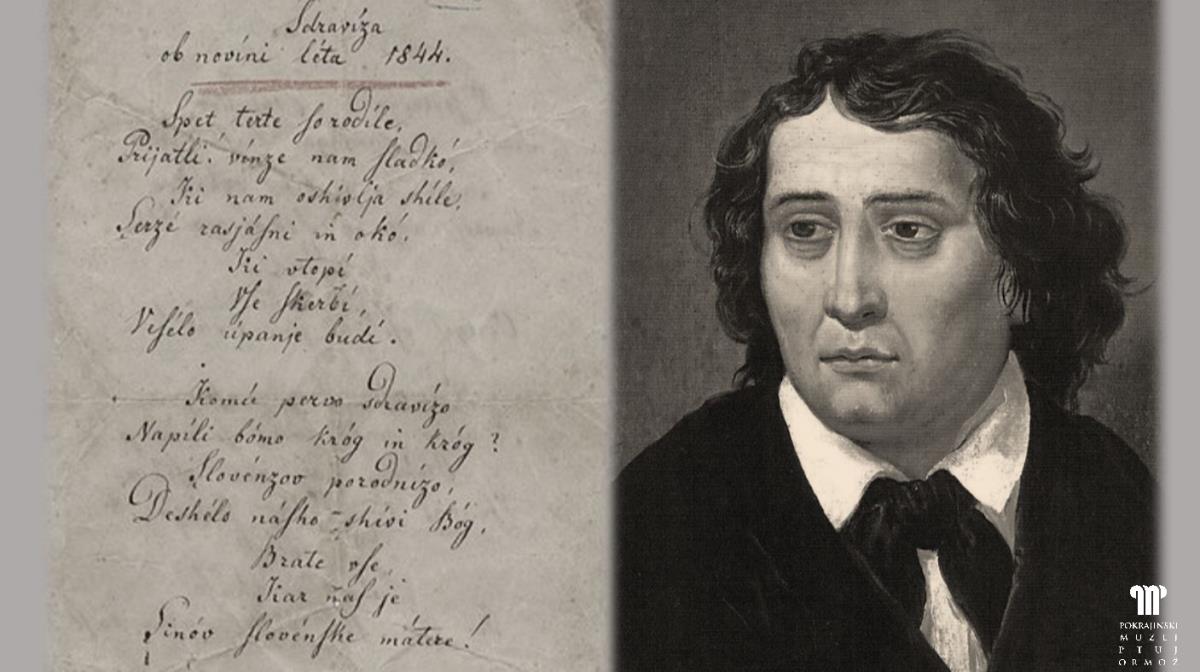 Sdravíza
ob novíni léta 1844.
Spet terte ſo rodíle,
Prijatli! vínze nam ſladkó,
Ki nam oshívlja shile,
Serzé rasjáſni in okó,
Ki vtopí
Vſe ſkerbí,
Veſélo úpanje budí.
Komú pervo sdravízo
Napíli bómo króg in króg?
Slovénzov porodnízo,
Deshélo náſho shívi Bóg,
Brate vſe,
Kar naſ je
Sinóv ſlovénſke mátere!
POKRAJINSKI
MUZEJ
PTUJ
ORMOŽ